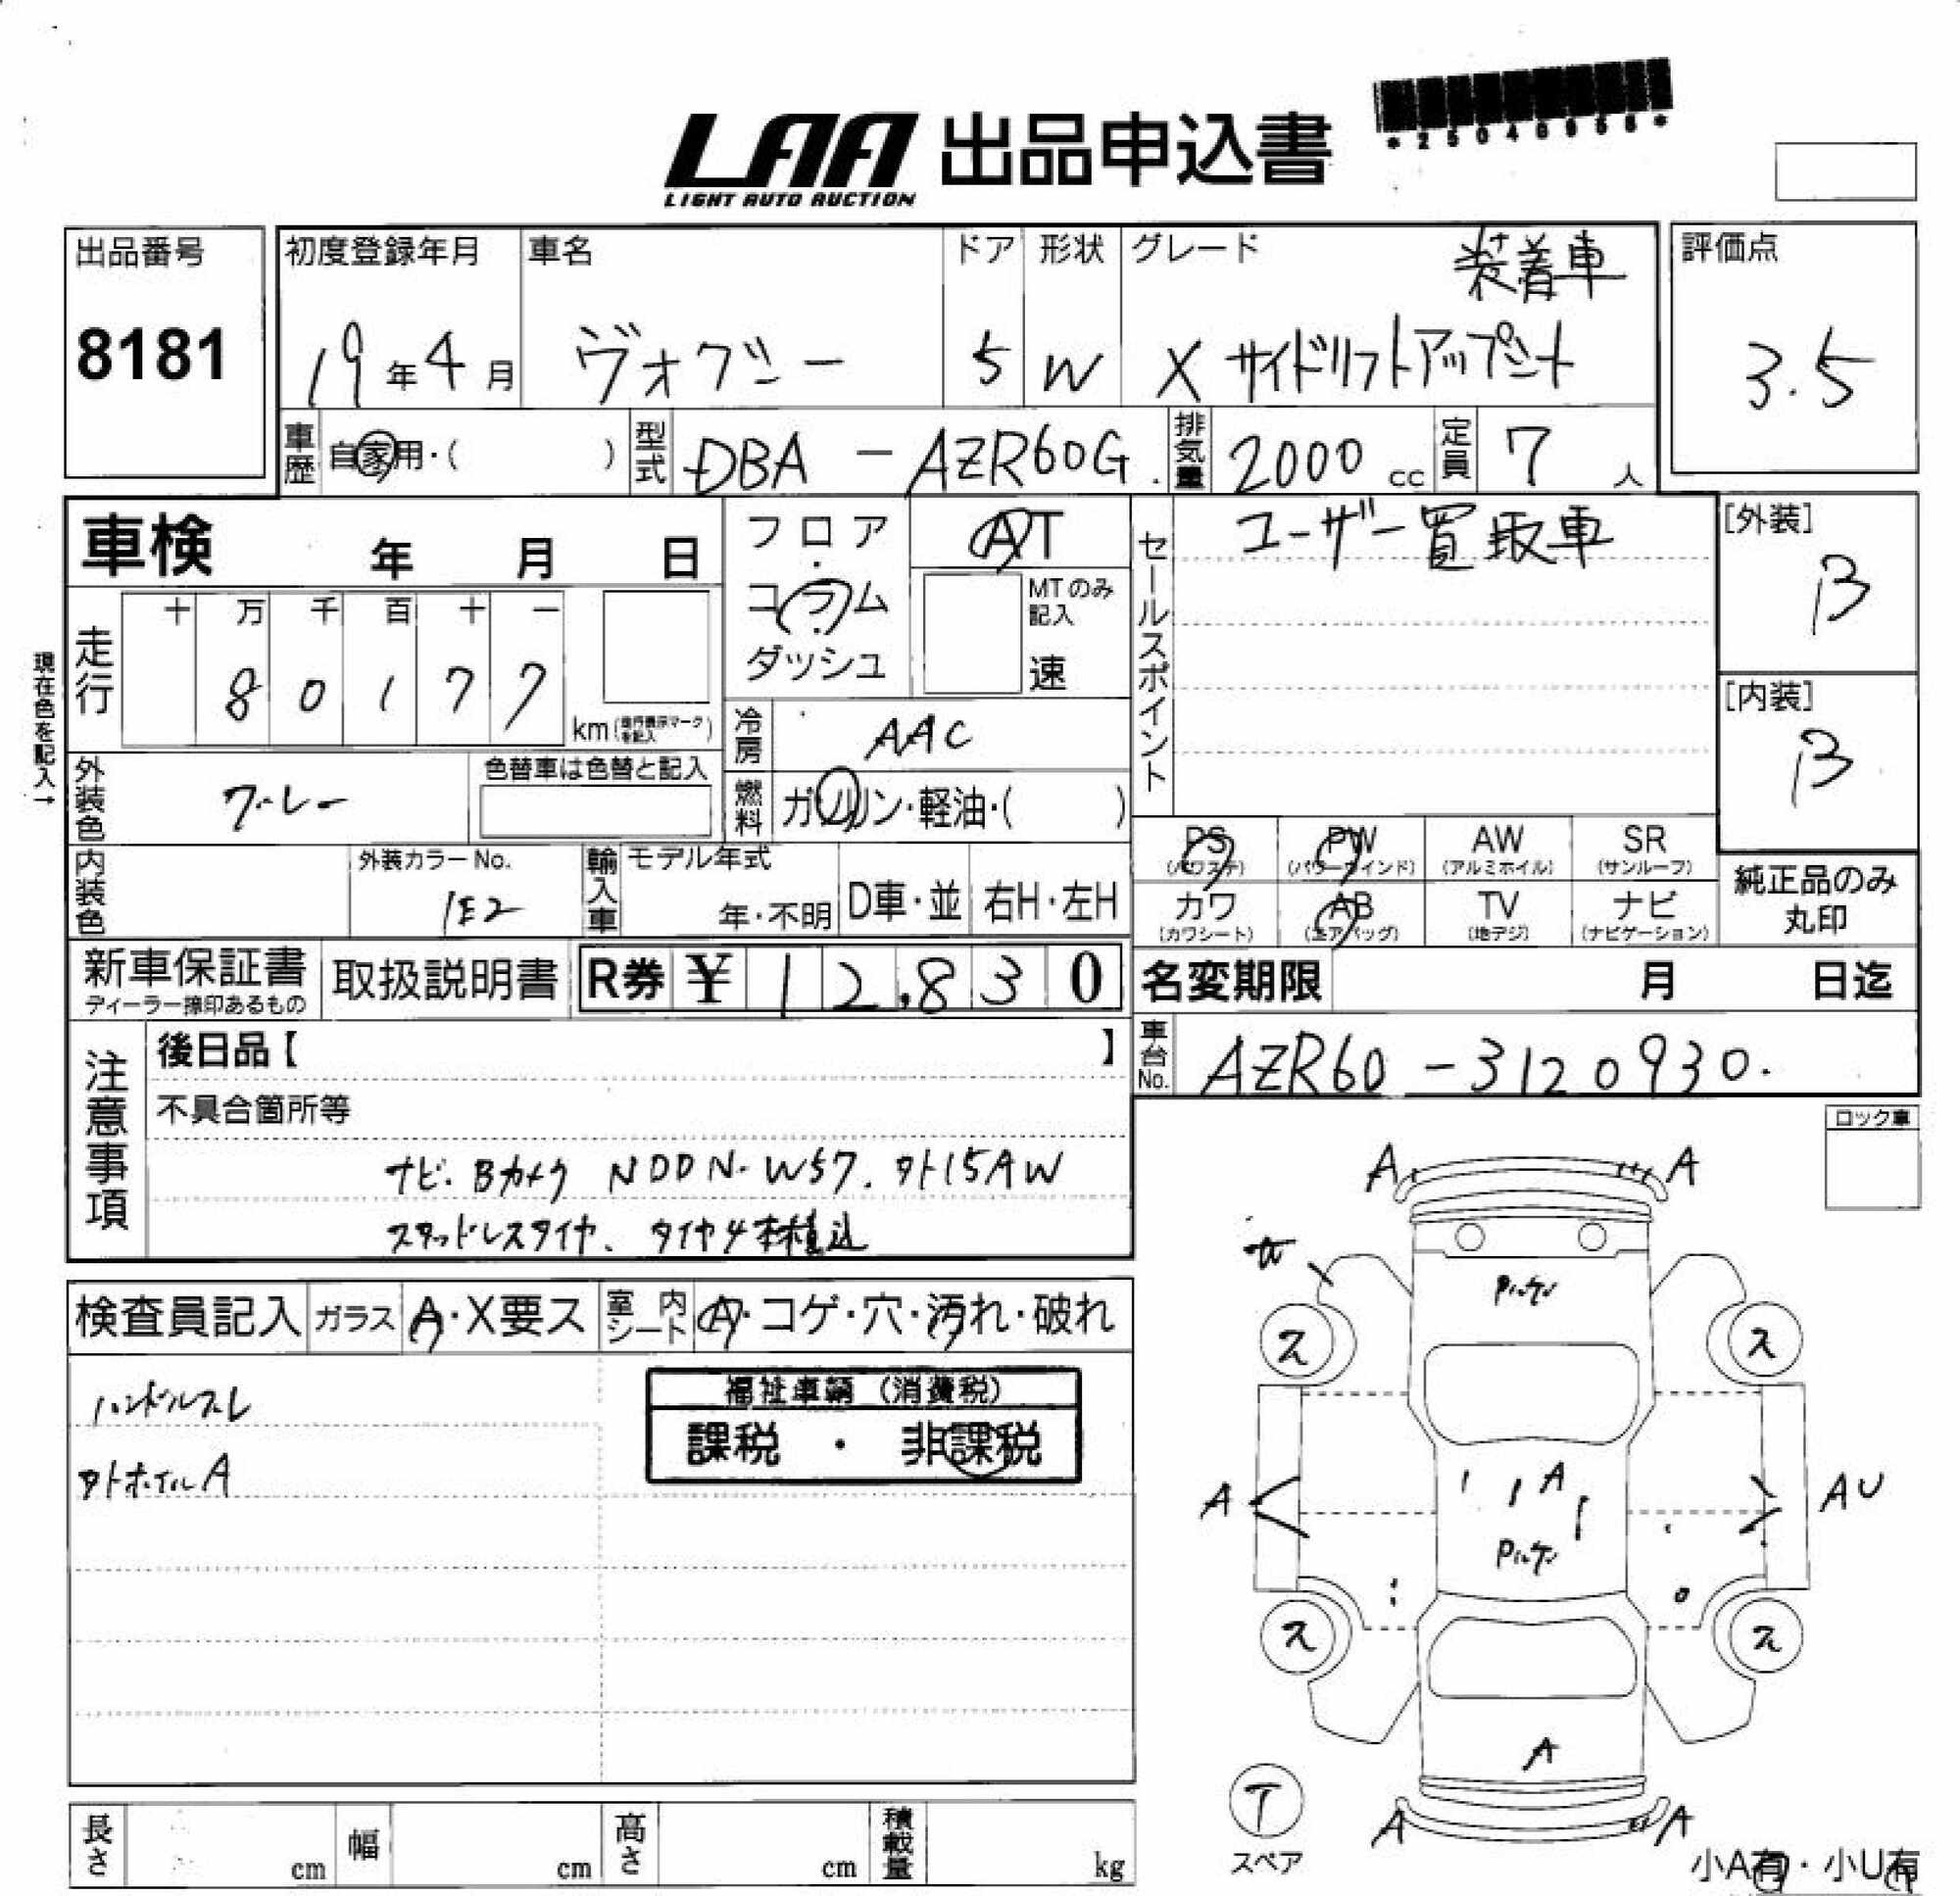 LAA 出品申込書
LIGHT AUTO AUCTION
*25040956*
出品番号
8181
初度登録年月
19年4月
車名
ヴォクシー
ドア
5
形状
W
グレード
装着車
X サイドリフトアップシート
評価点
3.5
車歴
自家用・( )
型式
DBA-AZR60G
排気量
2000 cc
定員
7人
車検 年 月 日
走行
十 万 千 百 十 一
8 0 1 7 7
km(走行表示マークを記入)
現在色を記入→
外装色
グレー
色替車は色替と記入
内装色
外装カラーNo.
1E2
フロア・コラム・ダッシュ
AT
MTのみ記入
速
冷房
AAC
燃料
ガソリン・軽油・( )
輸入車
モデル年式
年・不明
D車・並
右H・左H
セールスポイント
ユーザー買取車
[外装]
B
[内装]
B
PS
(パワステ)
PW
(パワーウインド)
AW
(アルミホイル)
SR
(サンルーフ)
カワ
(カワシート)
AB
(エアバッグ)
TV
(地デジ)
ナビ
(ナビゲーション)
純正品のみ
丸印
新車保証書
ディーラー捺印あるもの
取扱説明書
R券 ¥ 12,830
名変期限 月 日迄
車台No.
AZR60-3120930.
注意事項
後日品【 】
不具合箇所等
ナビ・Bカメラ NDDN-W57. 外15AW
スタッドレスタイヤ、タイヤ4本積込
ロック車
検査員記入
ガラス
A・X要ス
室内シート
A・コゲ・穴・汚れ・破れ
ハンドルスレ
外ホイルA
福祉車輌 (消費税)
課税 ・ 非課税
A A
ス ス
A AU
A
ス ス
A
A A
T
スペア
小A有・小U有
長さ cm
幅 cm
高さ cm
積載量 kg